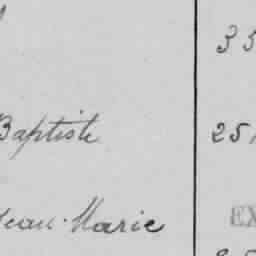 35
Baptiste 25
Jean-Marie EX